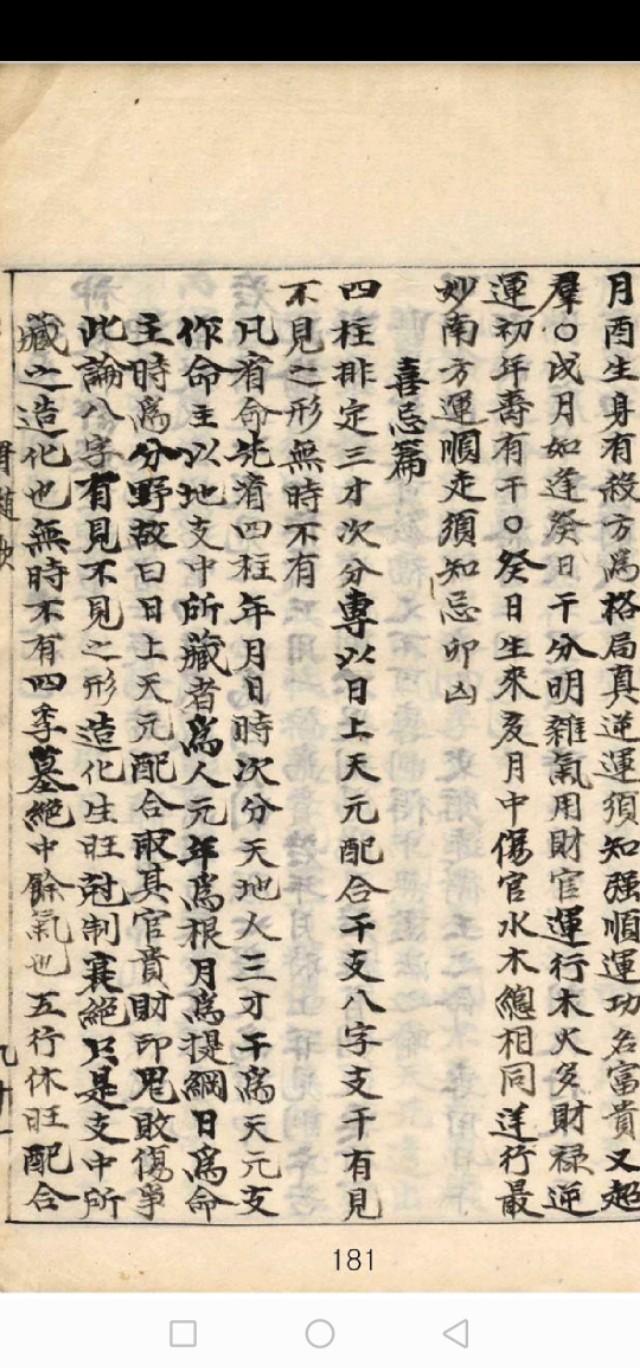 月酉生身有殺方爲格局真逆運須知强順運功名富貴又超
羣〇戌月如逢癸日干分明雜氣用財官運行木火多財禄逆
運初年壽有干〇癸日生來亥月中傷官水木總相同逆行最
妙南方運順走須知忌卯凶
喜忌篇
四柱排定三才次分專以日上天元配合干支八字支干有見
不見之形無時不有
凡看命先演四柱年月日時次分天地人三才干爲天元支
作命主以地支中所藏者爲人元年爲根月爲提綱日爲命
主時爲分野故曰日上天元配合取其官貴財印鬼敗傷爭
此論八字有見不見之形造化生旺尅制衰絕只是支中所
藏之造化也無時不有四季墓絕中餘氣也五行休旺配合
181